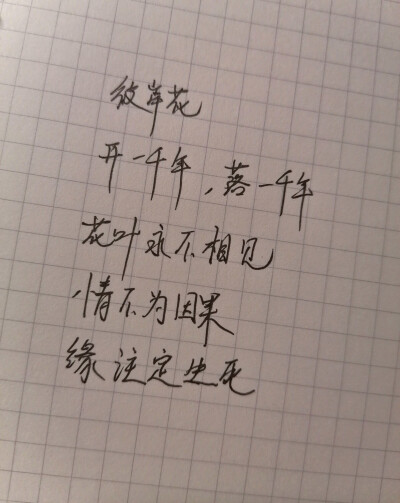 彼岸花
开一千年，落一千年
花叶永不相见
情不为因果
缘注定生死